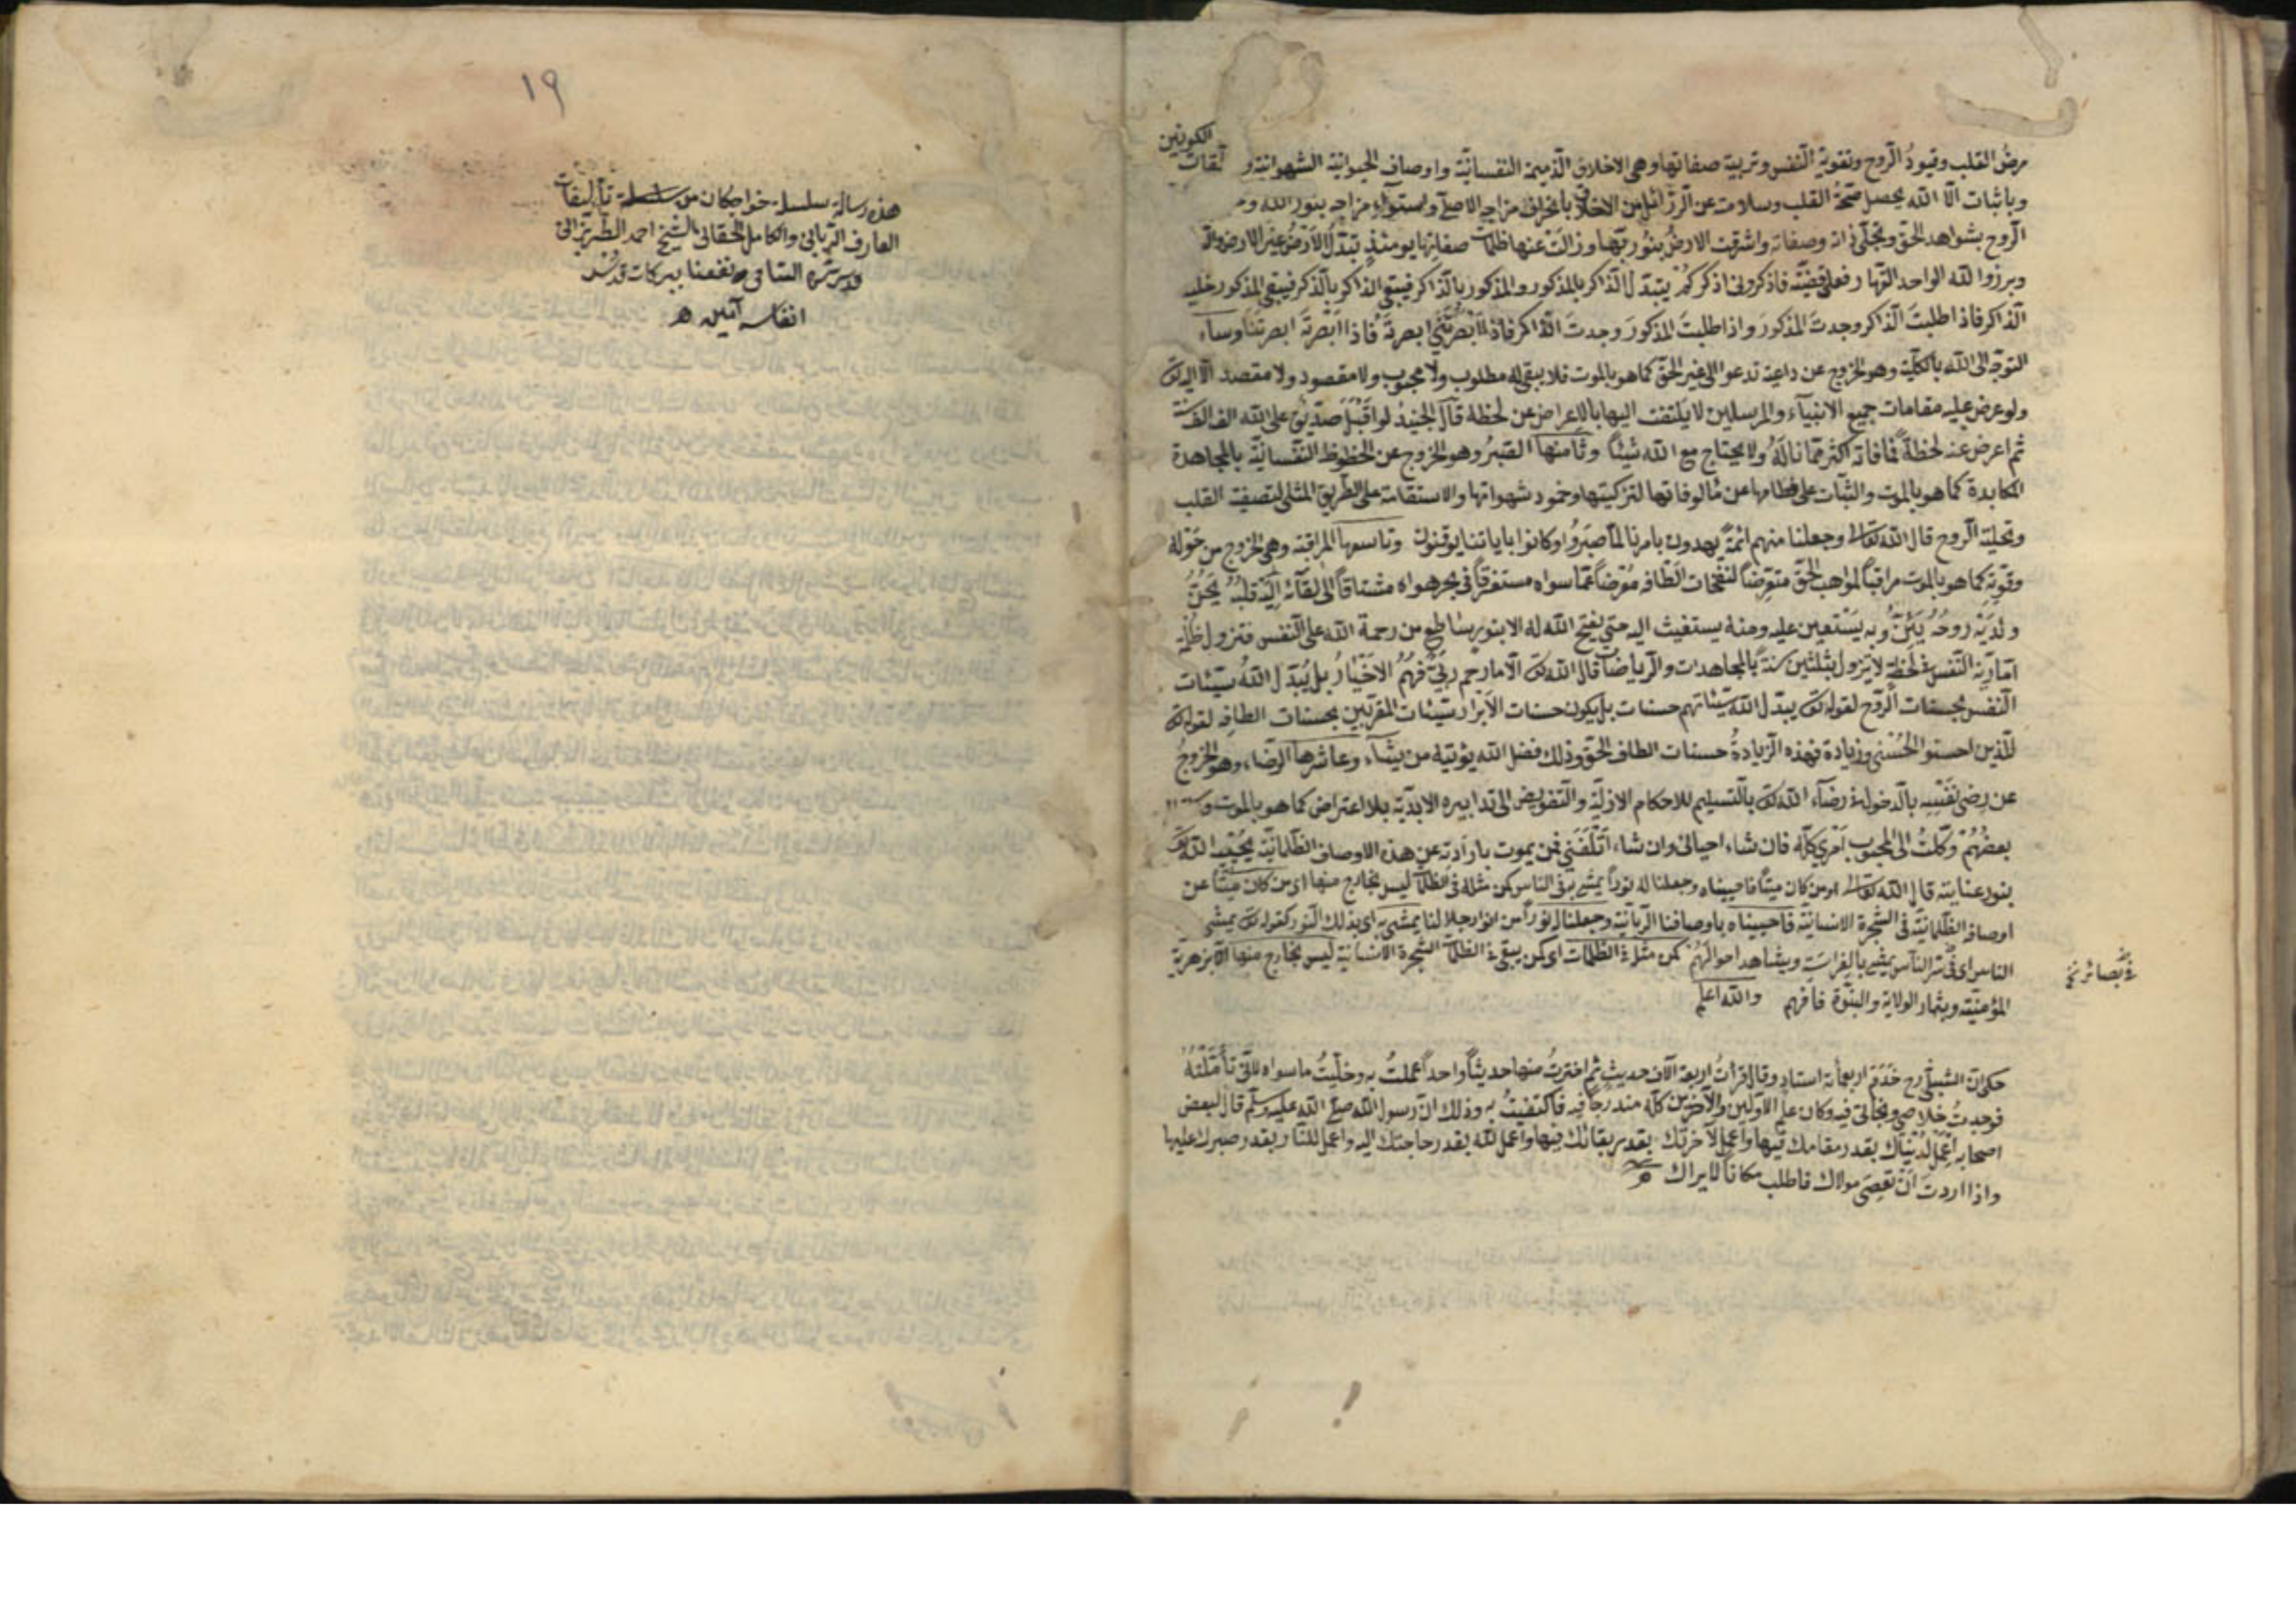 الكونين
مرض القلب وقيود الروح وتقوية النفس وتربية صفاتها وهي الاخلاق الذميمة النفسانية واوصاف الحيوانية الشهوانية و تعلقات
وباثبات الا الله يحصل صحة القلب وسلامته عن الرذائل من الاخلاق بانحراف مزاجه الاصلي واستواء مزاجه بنور الله و
الروح بشواهد الحق وتجلى ذاته وصفاته واشرقت الارض بنور ربها وزالت عنها ظلمات صفاتها يومئذ تبدل الارض غير الارض وال
وبرزوا لله الواحد القهار فعلى قضية فاذكروني اذكركم يتبدل الذاكر بالمذكور والمذكور بالذاكر فيبقى الذاكر بالذكر فيبقى المذكور خليه
الذاكر فاذا طلبت الذاكر وجدت المذكور واذا طلبت المذكور وجدت الذاكر فاذا ابصرتني ابصرته فاذا ابصرته ابصرتنا وسا
التوجه الى الله بالكلية وهو الخروج عن داعية تدعوا الى غير الحق كما هو بالموت فلا يبقى له مطلوب ولا محبوب ولا مقصود ولا مقصد الا الله تعالى
ولو عرض عليه مقامات جميع الانبياء والمرسلين لا يلتفت اليها بالاعراض عن لحظة قال الجنيد لو اقبل صديق على الله الف الف سنة
ثم اعرض عنه لحظة فما فاته اكثر مما ناله ولا يحتاج مع الله شيئا وثامنها الصبر وهو الخروج عن الحظوظ النفسانية بالمجاهدة
المكابدة كما هو بالموت والثبات على فطامها عن مألوفاتها لتزكيتها وخمود شهواتها والاستقامة على الطريق المثلى لتصفية القلب
وتحلية الروح قال الله تعالى وجعلنا منهم ائمة يهدون بامرنا لما صبروا وكانوا باياتنا يوقنون وتاسعها المراقبة وهي الخروج من حوله
وقوته كما هو بالموت مراقبا لمواهب الحق متعرضا لنفحات الطافه معرضا عما سواه مستغرقا في بحر هواه مشتاقا الى لقائه اليه قلبه يحن
ولديه روحه يئن وبه يستعين عليه ومنه يستغيث اليه حتى يفتح الله له الابنور ساطع من رحمة الله على النفس فتزول ظلمة
امارية النفس في لحظة لا يزول بثلثين سنة بالمجاهدات والرياضات قال الله تعالى الا ما رحم ربي فهم الاخيار بل يبدل الله سيئات
النفس بحسنات الروح لقوله تعالى يبدل الله سيئاتهم حسنات بل يكون حسنات الابرار سيئات المقربين بحسنات الطافه لقوله تعالى
للذين احسنوا الحسنى وزيادة فهذه الزيادة حسنات الطاف الحق وذلك فضل الله يؤتيه من يشاء وعاشرها الرضا، وهو الخروج
عن رضى نفسه بالدخول في رضاء الله تعالى بالتسليم للاحكام الازلية والتفويض الى تدابيره الابدية بلا اعتراض كما هو بالموت و
بعضهم وكلت الى المحبوب امري كله فان شاء احياني وان شاء اتلفني فمن يموت بارادته عن هذه الاوصاف الظلمانية يحييه الله تعالى
بنور عنايته قال الله تعالى اومن كان ميتا فاحييناه وجعلنا له نورا يمشي به في الناس كمن مثله في الظلمات ليس بخارج منها اي من كان ميتا عن
اوصافه الظلمانية في الشجرة الانسانية فاحييناه باوصافنا الربانية وجعلنا له نورا من انوار جلالنا يمشي به اي بذلك النور كقوله تعالى يمشي
الناس اي في سر الناس يمشي بالفراسة ويشاهد احوالهم كمن مثله في الظلمات اي كمن يبقى في الظلمات الشجرة الانسانية ليس بخارج منها الا بزهرة
المؤمنية وبثمار الولاية والنبوة فافهم والله اعلم
حكي ان الشبلي رح خدم اربعمائة استاد وقال قرأت اربعة آلاف حديث ثم اخترت منها حديثا واحدا عملت به وخليت ما سواه لاني تأملته
فوجدت خلاصي ونجاتي فيه وكان علم الاولين والآخرين كله مندرجا فيه فاكتفيت به وذلك ان رسول الله صلى الله عليه وسلم قال لبعض
اصحابه اعمل لدنياك بقدر مقامك فيها واعمل لآخرتك بقدر بقائك فيها واعمل لله بقدر حاجتك اليه واعمل للنار بقدر صبرك عليها
واذا اردت ان تعصى مولاك فاطلب مكانا لا يراك
١٩
هذه رسالة سلسلة خواجكان من تأليفات
العارف الرباني والكامل الحقاني الشيخ احمد
قدس سره السامي نفعنا ببركات قدس
انفاسه آمين